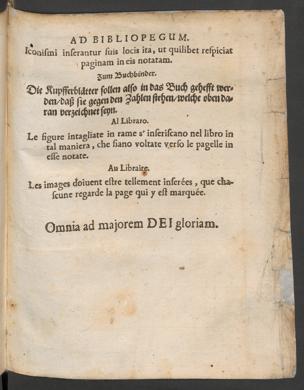 AD BIBLIOPEGUM.
Iconismi inserantur suis locis ita, ut quilibet respiciat
paginam in eis notatam.
Zum Buchbinder.
Die Kupfferblätter sollen also in das Buch gehefft wer-
den/daß sie gegen den Zahlen stehen/welche oben da-
ran verzeichnet seyn.
Al Libraro.
Le figure intagliate in rame s' inseriscano nel libro in
tal maniera, che siano voltate verso le pagelle in
esse notate.
Au Libraire.
Les images doiuent estre tellement inserées, que cha-
scune regarde la page qui y est marquée.
Omnia ad majorem DEI gloriam.